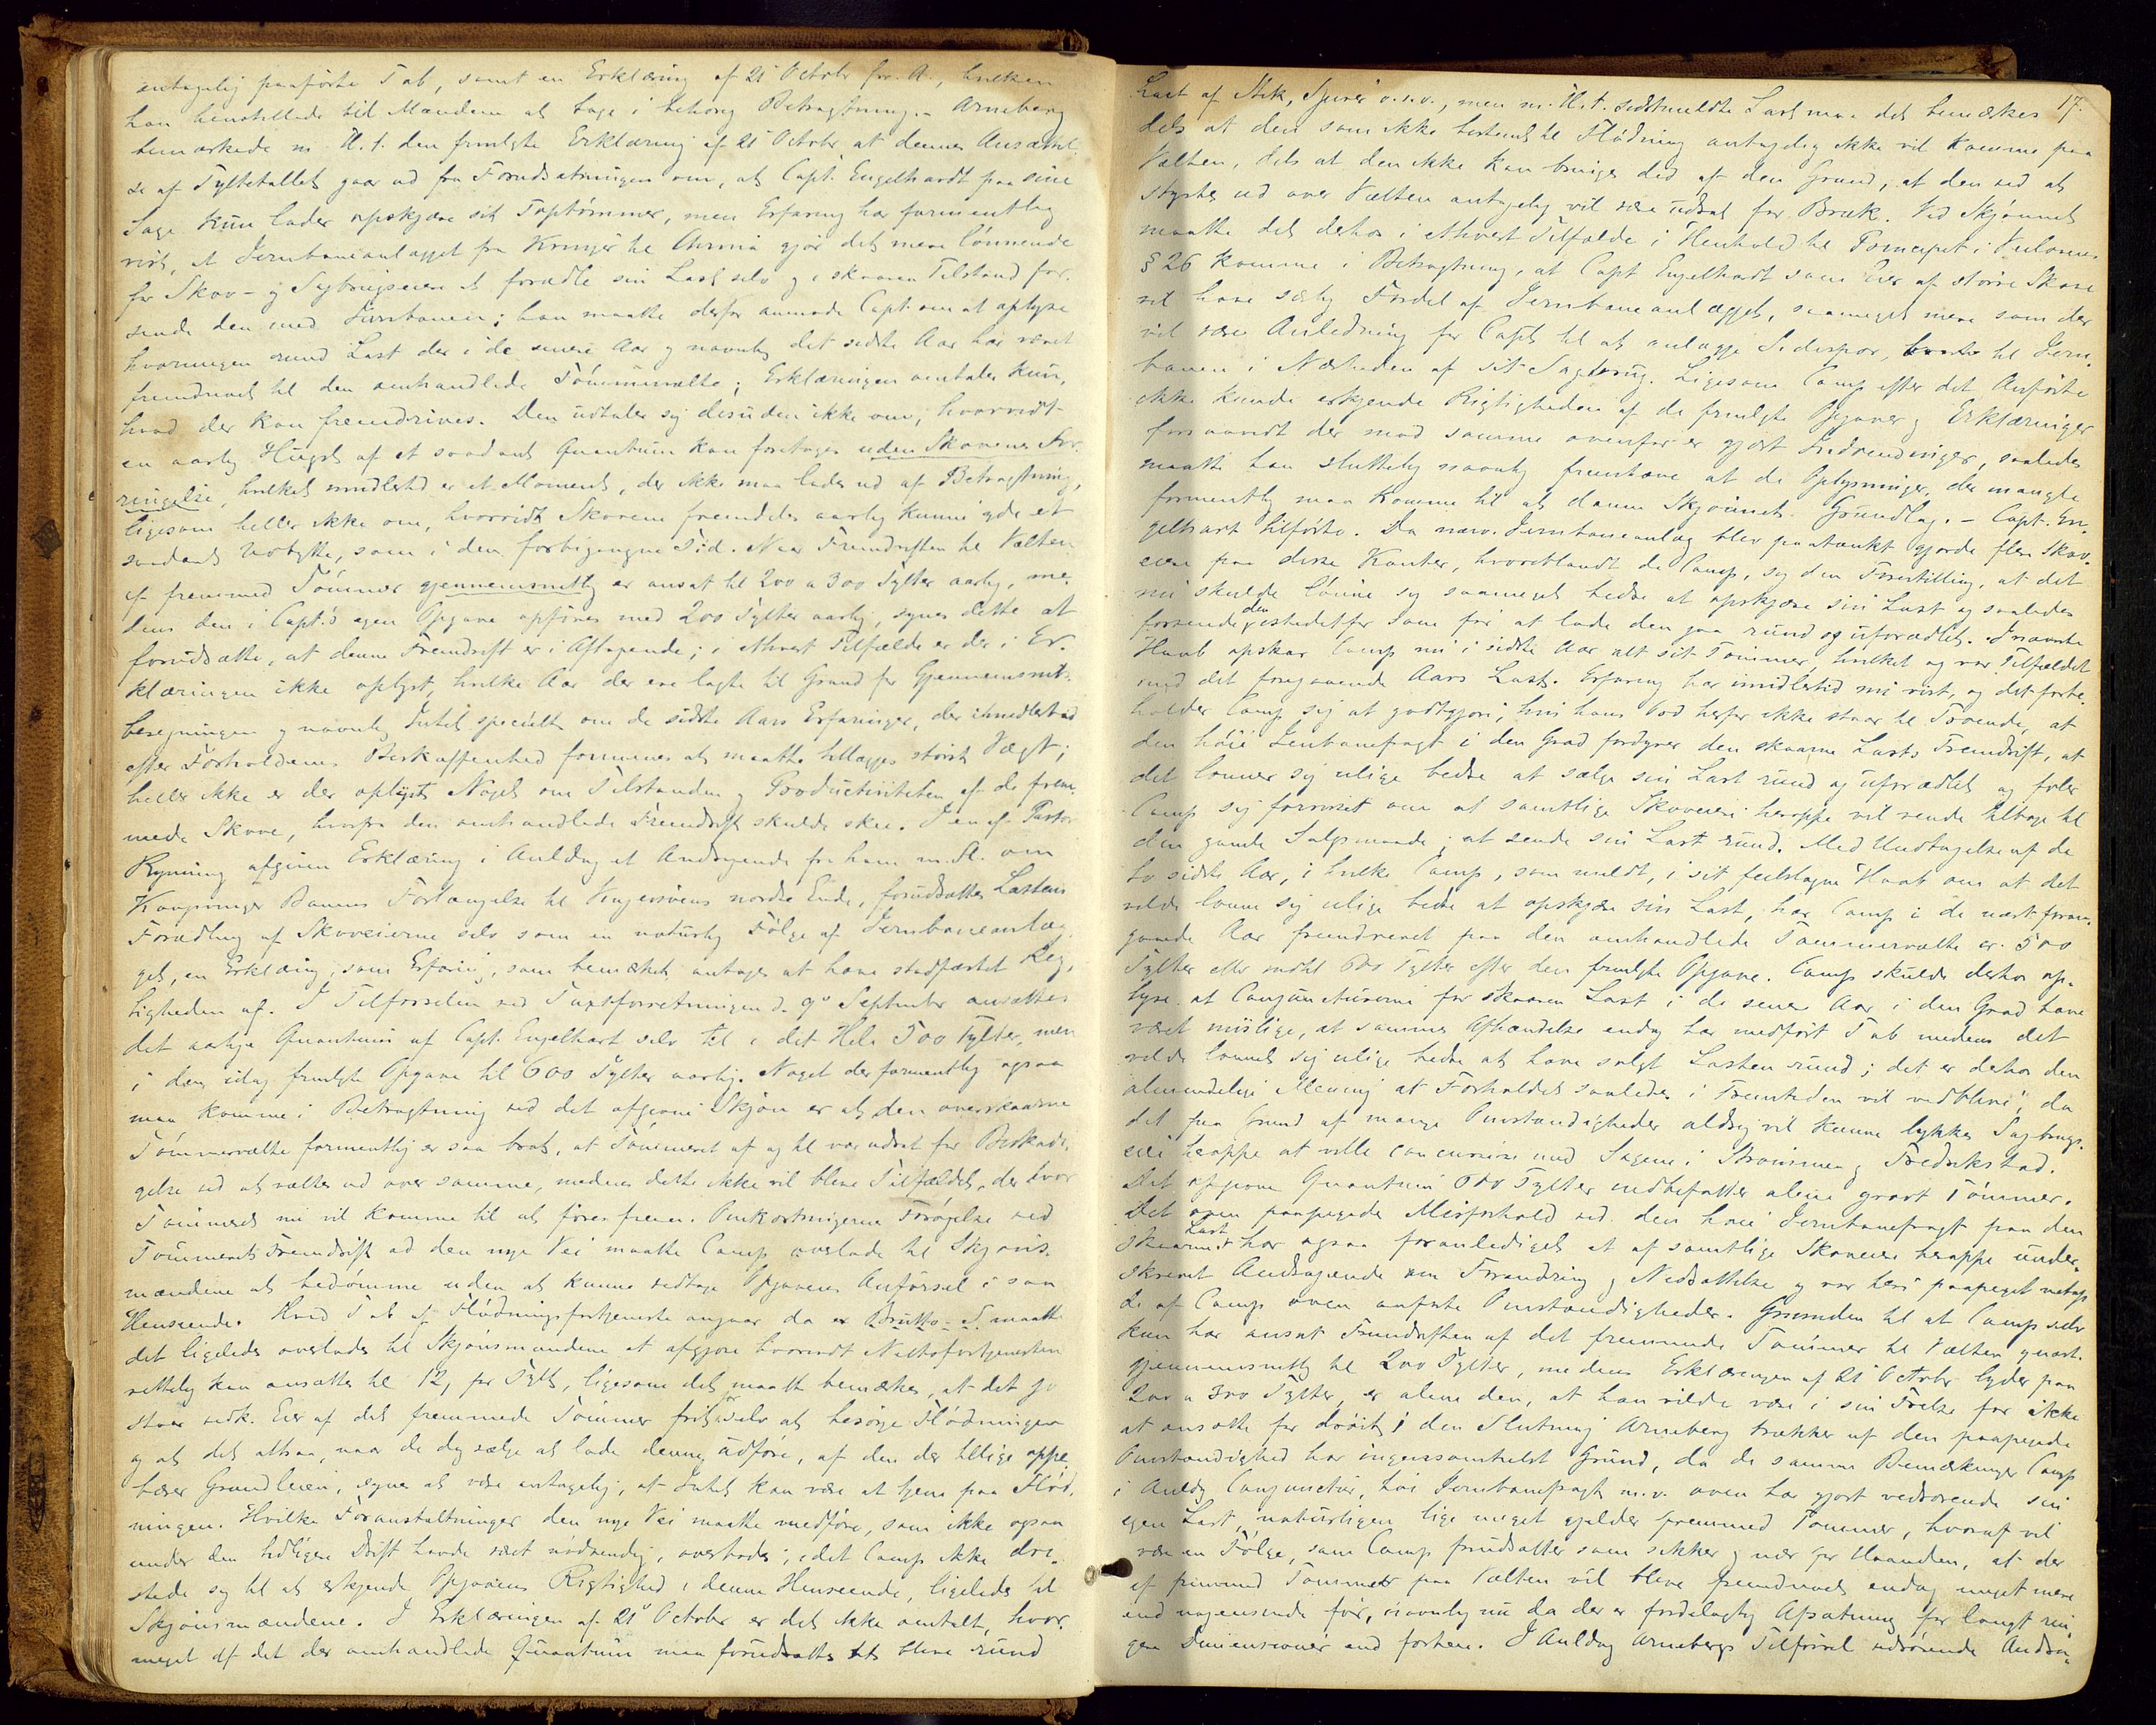 antagelig paaførte Tab, samt en Erklæring af 21 Octobr f. A., hvilken
han henstillede til Mændene at tage i behørig Betragtning. - Arneberg
bemærkede m. H. t. den fremlagte Erklæring af 21 Octobr at dennes Ansættel-
se af Tyltetallet gaar ud fra Forudsætningen om, at Capt. Engelhardt paa sine
Sage kun lader opskjære sit Toptømmer, men Erfaring har formentlig
vist, at Jernbaneanlægget fra Kongsv. til Charl. gjør det mere lønnende
for Skov- og Sagbrugseiere at forædle sin Last selv og i skaaren Tilstand for-
sende den med Jernbanen; han maatte derfor anmode Capt. om at oplyse
hvormegen rund Last der i de senere Aar og navnlig det sidste Aar har været
fremdrevet til den omhandlede Tømmervælte; Erklæringen omtaler kun,
hvad der kan fremdrives. Den udtaler sig desuden ikke om, hvorvidt
en aarlig Hugst af et saadant Quantum kan foretages uden Skovenes For-
ringelse, hvilket imidlertid er et Moment, der ikke maa lades ud af Betragtning,
ligesom heller ikke om, hvorvidt Skovene fremdeles aarlig kunne yde et
saadant Udbytte, som i den forbigangne Tid. Naar Fremdriften til Vælten
af fremmed Tømmer gjennemsnitlig er ansat til 200 a 300 Tylter aarlig, me-
dens den i Capt.s egen Opgave opføres med 200 Tylter aarlig, synes dette at
forudsætte, at denne Fremdrift er i Aftagende; i ethvert Tilfælde er der i Er-
klæringen ikke oplyst, hvilke Aar der ere lagte til Grund for Gjennemsnits-
beregningen og navnlig Intet specielt om de sidste Aars Erfaringer, der imidlertid
efter Forholdenes Beskaffenhed formenes at maatte tillægges størst Vægt;
heller ikke er der oplyst Noget om Tilstanden og Productiviteten af de frem-
mede Skove, hvorfra den omhandlede Fremdrift skulde skee. I en af Pastor
Rynning afgiven Erklæring i Anledn. af Andragende fra ham m. fl. om
Kongsvinger Banens Forlængelse til Vingersøens nordre Ende, forudsættes Lastens
Forædling af Skoveierne selv som en naturlig Følge af Jernbaneanlæg-
get, en Erklæring, som Erfaring, som bemærket, antages at have stadfæstet Rig-
tigheden af. I Tilførselen ved Taxtforretningen d. 9de September ansættes
det aarlige Quantum af Capt. Engelhart selv til i det Hele 500 Tylter, men
i den idag fremlagte Opgave til 600 Tylter aarlig. Noget der formentlig ogsaa
maa komme i Betragtning ved det afgivne Skjøn er at den overskaarne
Tømmervælte formentlig er saa brat, at Tømmeret af og til var udsat for Beskadi-
gelse ved at væltes ud over samme, medens dette ikke vil blive Tilfældet, der hvor
Tømmeret nu vil komme til at føres frem. Omkostningernes Forøgelse ved
Tømmerets Fremdrift ad den nye Vei maatte Comp. overlade til Skjøns-
mændene at bedømme uden at kunne vedtage Opgavens Anførsel i saa
Henseende. Hvad Tab af Flødningsfortjeneste angaar da er Brutto- maatte
det ligeledes overlades til Skjønsmændene at afgjøre hvorvidt Nettofortjenesten
rettelig kan ansættes til 12 pr Tylt, ligesom det maatte bemærkes, at det jo
staar vedk. Eier af det fremmede Tømmer frit for selv at besørge Flødningen
og at det altsaa, naar de dog vælge at lade denne udføre, af den der tillige oppe-
bærer Grundleien, synes at være antagelig, at Intet kan være at tjene paa Flød-
ningen. Hvilke Foranstaltninger den nye Vei maatte medføre, som ikke ogsaa
under den tidligere Drift havde været nødvendig, overlodes, idet Comp. ikke dri-
stede sig til at erkjende Opgavens Rigtighed i denne Henseende, ligeledes til
Skjønsmændene. I Erklæringen af 21 Octobr er det ikke omtalt, hvor-
meget af det der omhandlede Quantum maa forudsættes at blive rund
17.
Last af Stik, Spirer o.s.v., men m. H. t. sidstmeldte Last maa det bemærkes
dels at den som ikke bestemt til Flødning antagelig ikke vil komme paa
Vælten, dels at den ikke kan bringes did af den Grund, at den ved at
styrtes ud over Vælten antagelig vil være udsat for Bræk. Ved Skjønnet
maatte det derhos i ethvert Tilfælde i Henhold til Principet i Veilovens
§ 26 komme i Betragtning, at Capt Engelhardt som Eier af større Skove
vil have særlig Fordel af Jernbaneanlægget, saameget mere som der
vil være Anledning for Capt. til at anlægge Sidespor til Jern-
banen i Nærheden af sit Sagbrug. Ligesom Comp. efter det Anførte
ikke kunde erkjende Rigtigheden af de fremlagte Opgaver og Erklæringer
forsaavidt der mod samme ovenfor er gjort Indvendinger, saaledes
maatte han sluttelig navnlig fremhæve at de Oplysninger, der mangle
formentlig maa komme til at danne Skjønnets Grundlag. - Capt. En-
gelhart tilførte. Da nærv. Jernbaneanlæg blev paatænkt gjorde flere Skov-
eiere paa disse Kanter, hvoriblandt de Comp., sig den Forestilling, at det
nu skulde lønne sig saameget bedre at opskjære sin Last og saaledes
forsende den istedetfor som før at lade den gaa rund og uforædlet. I nævnte
Haab opskar Comp. nu i sidste Aar alt sit Tømmer, hvilket og var Tilfældet
med det foregaaende Aars Last. Erfaring har imidlertid nu vist, og det forbe-
holder Comp. sig at godtgjøre, hvis hans Ord herfor ikke staar til Troende, at
den høie Jernbanefragt i den Grad fordyrer den skaarne Lasts Fremdrift, at
det lønner sig ulige bedre at sælge sin Last rund og uforædlet og føler
Comp. sig forvisset om at samtlige Skoveiere heroppe vil vende tilbage til
den gamle Salgsmaade; at sende sin Last rund. Med Undtagelse af de
to sidste Aar, i hvilke Comp., som meldt, i sit feilslagne Haab om at det
vilde lønne sig ulige bedre at opskjære sin Last, har Comp. i de næst foran-
gaaende Aar fremdrevet paa den omhandlede Tømmervælte er 500
Tylter eller indtil 600 Tylter efter den fremlagte Opgave. Comp. skulde derhos op-
lyse at Conjuncturerne for skaaren Last i de senere Aar i den Grad have
været mislige, at sammes Afhændelse endog har medført Tab medens det
vilde lønnet sig ulige bedre at have solgt Lasten rund; det er derhos den
almindelige Mening at Forholdet saaledes i Fremtiden vil vedblive, da
det paa Grund af mange Omstændigheder aldrig vil kunne lykkes Sagbrugs-
eiere heroppe at ville concurrere med Sagene i Strømmen og Fredrikstad.
Det opgivne Quantum 600 Tylter indbefatter alene grovt Tømmer.
Det oven paapegede Misforhold ved den høie Jernbanefragt paa den
skaarne Last har ogsaa foranlediget et af samtlige Skoveiere heroppe under-
skrevet Andragende om Forandring og Nedsættelse og var heri paapeget netop
de af Comp. oven anførte Omstændigheder. Grunden til at Comp. selv
kun har ansat Fremdriften af det fremmede Tømmer til Vælten qvæst.
gjennemsnitlig til 200 Tylter, medens Erklæringen af 21 Octobr lyder paa
200 a 300 Tylter, er alene den, at han vilde være i sin Frelse for ikke
at ansætte for drøit; den Slutning Arneberg trækker af den paapegede
Omstændighed har ingensomhelst Grund, da de samme Bemærkninger Comp.
i Anledn. Conjunctur, høi Jernbanefragt m.v. oven har gjort vedrørende sin
egen Last, naturligen lige meget gjælder fremmed Tømmer, hvoraf vil
være en Følge, som Comp. forudsætter som sikker og nær for Haanden, at der
af fremmed Tømmer paa Vælten vil blive fremdrevet endog meget mere
end nogensinde før, navnlig nu da der er fordelagtig Afsætning for langt rin-
gere Dimensioner end forhen. I Anledn. Arnebergs Tilførsel vedrørende Andra-